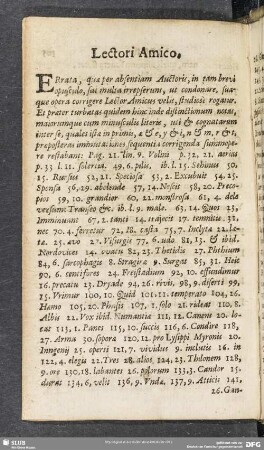 Lectori Amico.
ERrata, quæ per absentiam Auctoris, in tam brevi
opusculo, sat multa irrepserunt, ut condonare, sua-
que opera corrigere Lector Amicus velit, studiosè rogatur.
Et præter turbatas quidem hinc inde distinctionum notas,
majorumque cum minusculis literis, uti & cognatarum
inter se, quales ista in primis, a & e, y & i, n & m, r & t,
præposteras immutationes sequentia corrigenda summopere
restabant: Pag. 21. lin. 9. Volvit p. 32, 21. aërias
p. 33. l. 11. solertia. 49. 6. plus, ib. l. 15. Sebinus 50.
15. Rursus 52, 21. Speciosa 53, 2. Excubuit 54. 25.
Sponsa 56, 29. abolende 57, 14. Noscit 58, 20. Preco-
pios 59, 10. grandior 60, 21. monstrosa 61, 4. dele
versum: Transfer &c. ib. l. 9. male. 63, 14. Quos 23.
Imminuunt 67, 2. tanti 14. trajecit 17. tenniter. 31.
nec 70, 4. sarretur 72, 18. casta 75, 7. Inclyta 22. la-
te. 25. avo 27. Visurgis 77, 6. udo 81, 13. & ibid.
Nordovices 14. voarii 82, 25. Thetidis 27. Phthisin
84, 6. sarcophagis 8. Stragica 9. Surgas 85, 31. Heic
90, 6. cenciferos 24. Freistadium 92, 10. effundimus
16. precatu 13. Dryade 94, 26. rivis, 98, 9. diserti 99,
15. Vrimur 100, 10. Quid 101, 11. temperato 104, 26.
Hamo 105, 20. Phasis 107, 1. solo 21. rideat 110, 8.
Albis 22. Vox ibid. Numantia 111, 12. Canem 20. lo-
cat 113, 1. Panes 115, 10. succis 116, 6. Condire 118,
27. Arma 30. sopora 120, 12. pro Lysippi Myronis 20.
Inngenij 25. operti 121, 7. vividus 9. inclutis 16. in
122, 4. elogii 22. Tres 28. alios, 124, 23. Tholonem 128,
9. ore 130, 18. labantes 26. polorum 133, 3. Candor 15.
durat 134, 6. velit 136, 9. Vnda, 137, 9. Atticis 141,
26. Gan-
SLUB
DFG